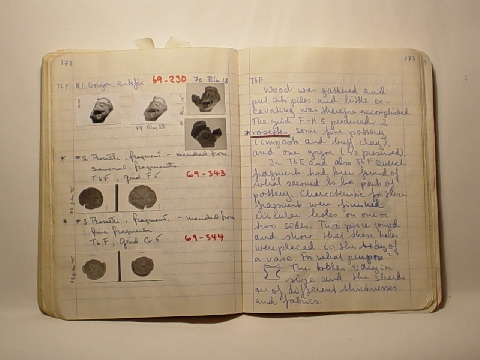 172
T6F
69-230
70 Pho 18
* #2 Rosette, fragment - mended from
several fragments
T6F, grid F6
69-343
* #3 Rosette, fragment - mended from
fragments
T6F, grid G5
69-344
173
T6F
Wood was gathered and
put in piles and little ex-
cavating was therefore accomplished
The grid F-H 5 produced 2
* rosettes, some fine pottery
(impasto and buff clay),
and one (is pierced).
In T6E and also T6F several
fragments had been found of
what seemed to be parts of
pottery. Characteristic
fragments were finished
circular holes on one or
two sides. Two pieces joined
and show that these holes
were placed in the body of
a vase. For what purpose
The holes vary in
size and the sherds
are of different thicknesses
and fabrics.